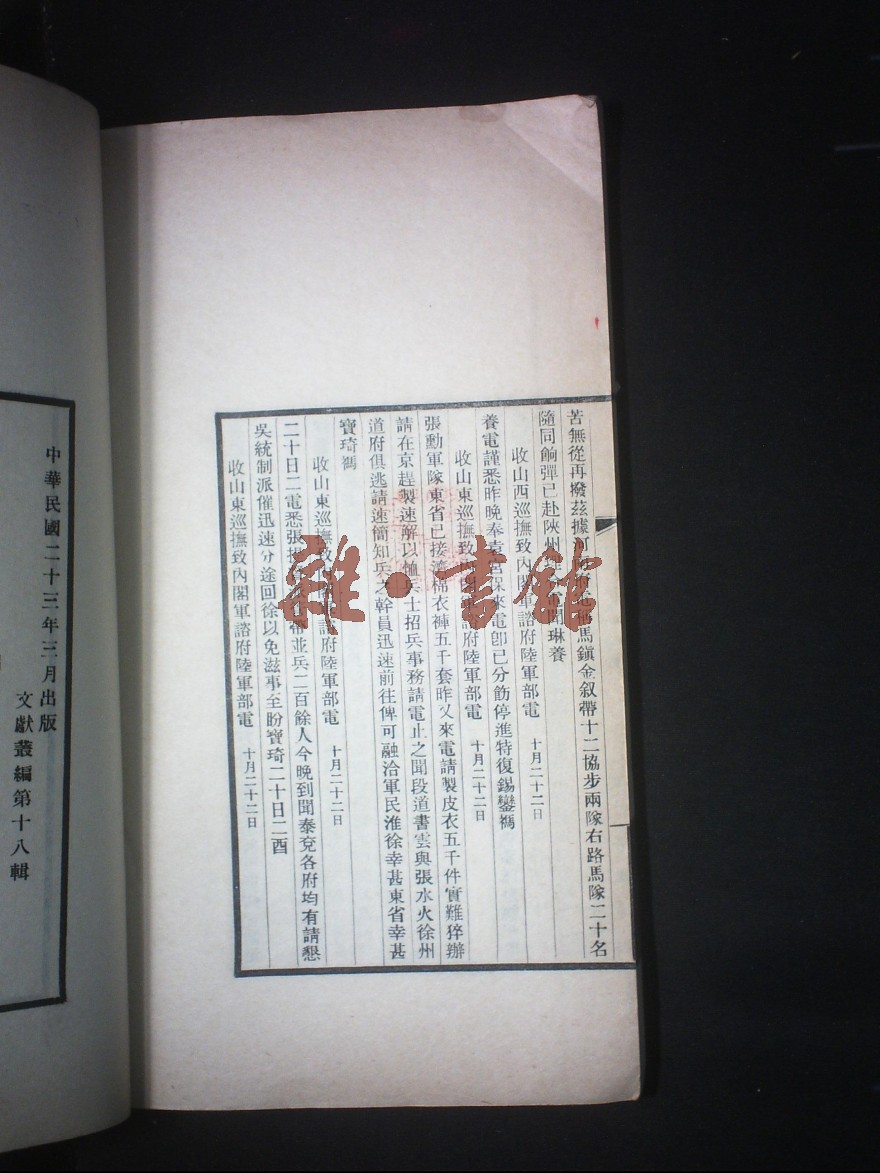 苦無從再撥茲據馬鎮金叙帶十二協步兩隊右路馬隊二十名
隨同餉彈已赴陝州琳養
收山西巡撫致內閣軍諮府陸軍部電 十月二十二日
養電謹悉昨晚奉袁宮保來電卽已分飭停進特復錫鑾禡
收山東巡撫致內閣軍諮府陸軍部電 十月二十二日
張勳軍隊東省已接濟棉衣褲五千套昨又來電請製皮衣五千件實難猝辦
請在京趕製速解以恤兵士招兵事務請電止之聞段道書雲與張水火徐州
道府俱逃請速簡知兵之幹員迅速前往俾可融洽軍民淮徐幸甚東省幸甚
寶琦禡
收山東巡撫致內閣軍諮府陸軍部電 十月二十二日
二十日二電悉張帶並兵二百餘人今晚到聞泰兗各府均有請懇
吳統制派催迅速分途回徐以免滋事至盼寶琦二十日二酉
收山東巡撫致內閣軍諮府陸軍部電 十月二十二日
中華民國二十三年三月出版
文獻叢編第十八輯
雜·書館